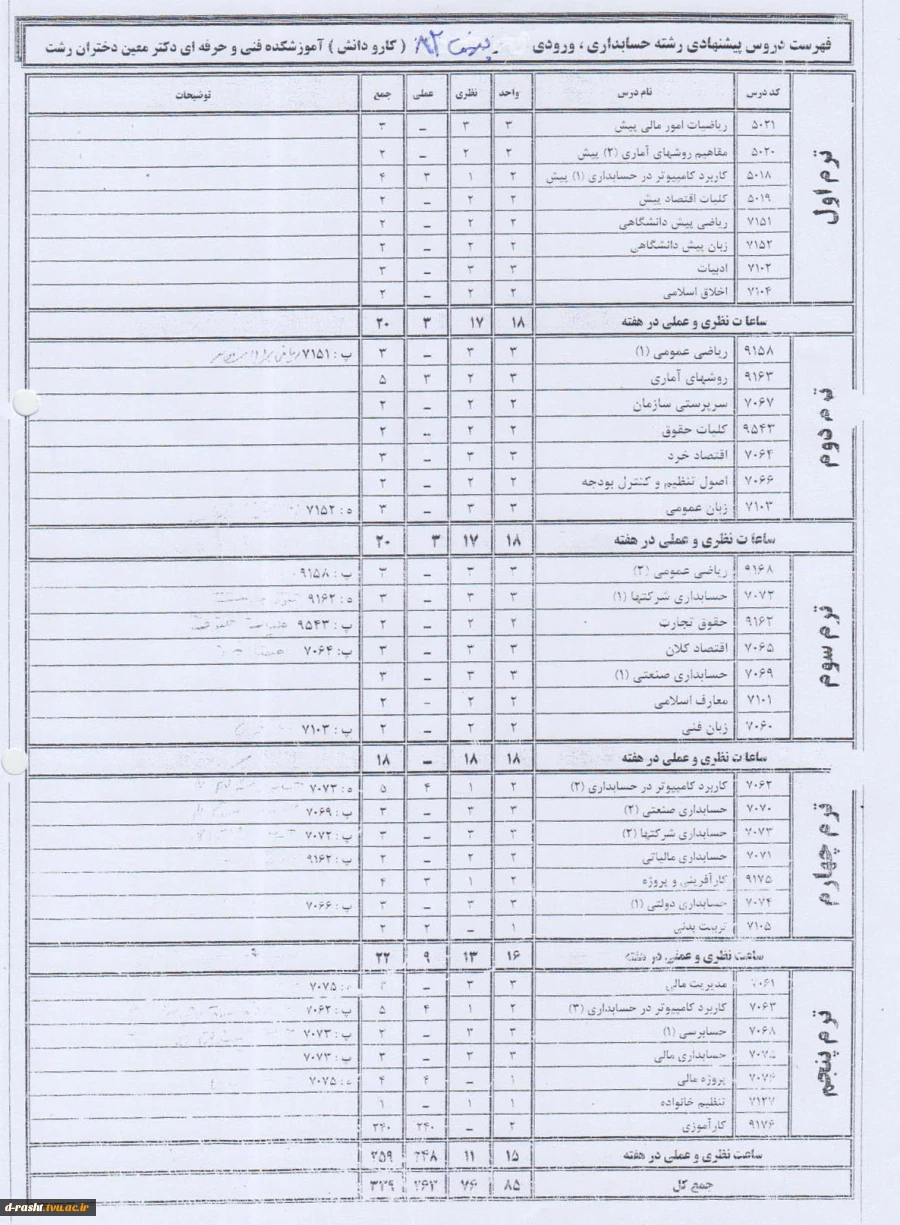 فهرست دروس پیشنهادی رشته حسابداری ، ورودی ( کارو دانش ) آموزشکده فنی و حرفه ای دکتر معین دختران رشت
کد درس نام درس واحد نظری عملی جمع توضیحات
ترم اول
۵۰۲۱ ریاضیات امور مالی پیش ۳ ۳ ـ ۳
۵۰۲۰ مفاهیم روشهای آماری (۲) پیش ۲ ۲ ـ ۲
۵۰۱۸ کاربرد کامپیوتر در حسابداری (۱) پیش ۲ ۱ ۳ ۴
۵۰۱۹ کلیات اقتصاد پیش ۲ ۲ ـ ۲
۷۱۵۱ ریاضی پیش دانشگاهی ۲ ۲ ـ ۲
۷۱۵۲ زبان پیش دانشگاهی ۲ ۲ ـ ۲
۷۱۰۲ ادبیات ۳ ۳ ـ ۳
۷۱۰۴ اخلاق اسلامی ۲ ۲ ـ ۲
ساعات نظری و عملی در هفته ۱۸ ۱۷ ۳ ۲۰
ترم دوم
۹۱۵۸ ریاضی عمومی (۱) ۳ ۳ ـ ۳ پ : ۷۱۵۱
۹۱۶۳ روشهای آماری ۳ ۲ ۳ ۵
۷۰۶۷ سرپرستی سازمان ۲ ۲ ـ ۲
۹۵۴۳ کلیات حقوق ۲ ۲ ـ ۲
۷۰۶۴ اقتصاد خرد ۳ ۳ ـ ۳
۷۰۶۶ اصول تنظیم و کنترل بودجه ۲ ۲ ـ ۲
۷۱۰۳ زبان عمومی ۳ ۳ ـ ۳ ه : ۷۱۵۲
ساعات نظری و عملی در هفته ۱۸ ۱۷ ۳ ۲۰
ترم سوم
۹۱۶۸ ریاضی عمومی (۲) ۳ ۳ ـ ۳ پ : ۹۱۵۸
۷۰۷۲ حسابداری شرکتها (۱) ۳ ۳ ـ ۳ ه : ۹۱۶۲
۹۱۶۲ حقوق تجارت ۲ ۲ ـ ۲ پ : ۹۵۴۳
۷۰۶۵ اقتصاد کلان ۳ ۳ ـ ۳ پ : ۷۰۶۴
۷۰۶۹ حسابداری صنعتی (۱) ۳ ۳ ـ ۳
۷۱۰۱ معارف اسلامی ۲ ۲ - ۲
۷۰۶۰ زبان فنی ۲ ۲ ـ ۲ پ : ۷۱۰۳
ساعات نظری و عملی در هفته ۱۸ ۱۸ ـ ۱۸
ترم چهارم
۷۰۶۲ کاربرد کامپیوتر در حسابداری (۲) ۲ ۱ ۴ ۵ ه : ۷۰۷۳
۷۰۷۰ حسابداری صنعتی (۲) ۳ ۳ ـ ۳ پ : ۷۰۶۹
۷۰۷۳ حسابداری شرکتها (۲) ۳ ۳ ـ ۳ پ : ۷۰۷۲
۷۰۷۱ حسابداری مالیاتی ۲ ۲ ـ ۲ پ : ۹۱۶۲
۹۱۷۵ کارآفرینی و پروژه ۲ ۱ ۳ ۴
۷۰۷۴ حسابداری دولتی (۱) ۳ ۳ ـ ۳ پ : ۷۰۶۶
۷۱۰۵ تربیت بدنی ۱ ـ ۲ ۲
ساعت نظری و عملی در هفته ۱۶ ۱۳ ۹ ۲۲
ترم پنجم
۷۰۶۱ مدیریت مالی ۳ ۳ ـ ه : ۷۰۷۵
۷۰۶۳ کاربرد کامپیوتر در حسابداری (۳) ۲ ۱ ۴ ۵ پ : ۷۰۶۲
۷۰۶۸ حسابرسی (۱) ۳ ۳ ـ پ : ۷۰۷۳
۷۰۷۵ حسابداری مالی ۳ ۳ ـ ۳ پ : ۷۰۷۳
۷۰۷۶ پروژه مالی ۱ ـ ۴ ۴ ه : ۷۰۷۵
۷۱۲۷ تنظیم خانواده ۱ ۱ ـ ۱
۹۱۷۶ کارآموزی ۲ ـ ۲۴۰ ۲۴۰
ساعت نظری و عملی در هفته ۱۵ ۱۱ ۲۴۸ ۲۵۹
جمع کل ۸۵ ۷۶ ۲۶۳ ۳۳۹
d-rasht.tvu.ac.ir